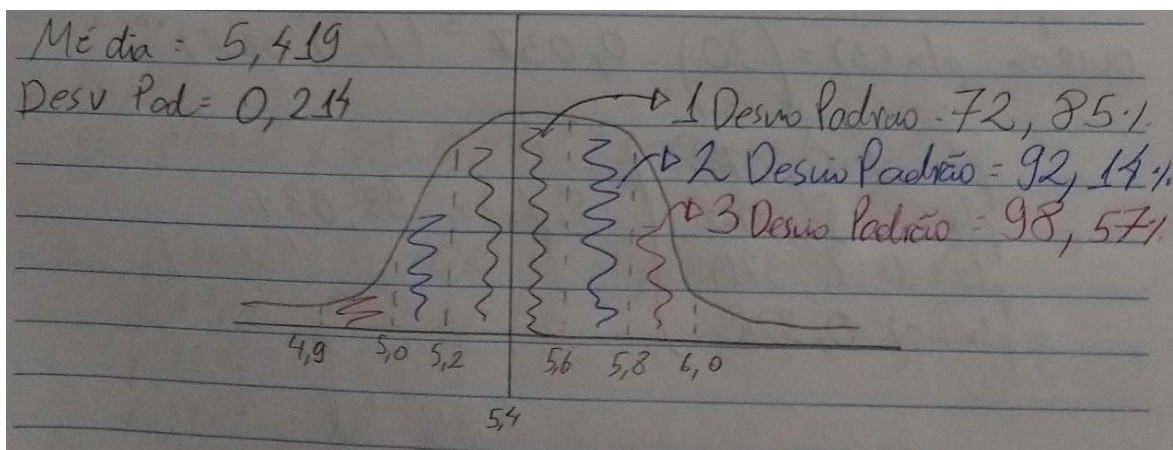 Média = 5,419
Desv Pad = 0,214
1 Desvio Padrao - 72,85%
2 Desvio Padrão = 92,14%
3 Desvio Padrão = 98,57%
4,9 5,0 5,2 5,6 5,8 6,0
5,4